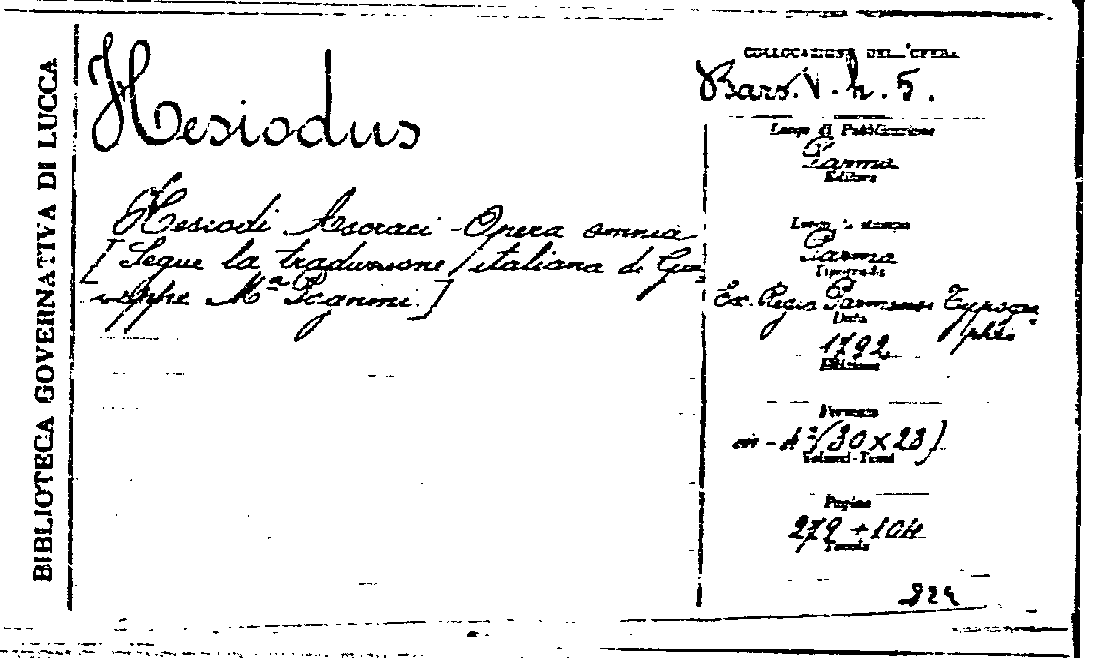 BIBLIOTECA GOVERNATIVA DI LUCCA
Hesiodus
Hesiodi Ascraei Opera omnia
[Segue la traduzione italiana di Giu-
seppe Mª Pagnini.]
COLLOCAZIONE DELL'OPERA
Bars. V. h. 5.
Luogo di Pubblicazione
Parma
Editore
Luogo di stampa
Parma
Tipografo
Ex Regio Parmensi Typogra
pheo
Data
1792
Edizione
Formato
in-4º (30x23)
Volumi-Tomi
Pagine
279 + 104
Tavole